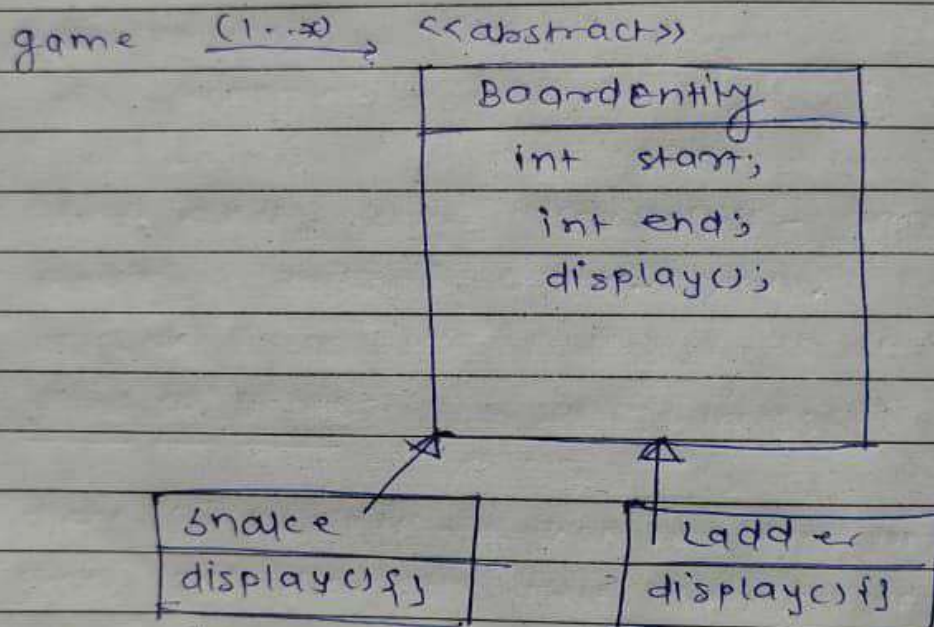 game (1..*) <<abstract>>
BoardEntity
int start;
int end;
display();
Snake
display(){}
Ladder
display(){}